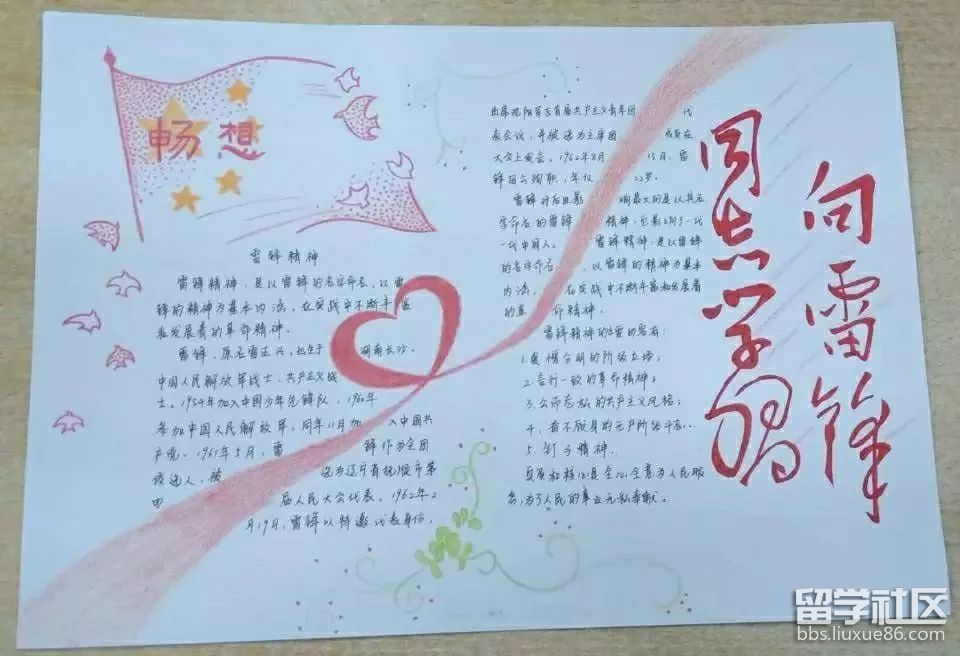 畅想
雷锋精神
雷锋精神，是以雷锋的名字命名，以雷
锋的精神为基本内涵，在实践中不断丰富
和发展着的革命精神.
雷锋，原名雷正兴，出生于湖南长沙，
中国人民解放军战士、共产主义战
士。1954年加入中国少年先锋队，1960年
参加中国人民解放军，同年11月加入中国共
产党。1961年5月，雷锋作为全团
候选人，被选为辽宁省抚顺市第
四届人民大会代表。1962年2
月19日，雷锋以特邀代表身份，
出席沈阳军区首届共产主义青年团代
表会议，并被选为主席团成员在
大会上发言。1962年8月15日，雷
锋因公殉职，年仅22岁。
雷锋对后世影响最大的是以其名
字命名的雷锋精神，它影响了一代
一代中国人。雷锋精神，是以雷锋
的名字命名，以雷锋的精神为基本
内涵，在实践中不断丰富和发展着
的革命精神。
雷锋精神的主要内容有：
1.爱憎分明的阶级立场；
2.言行一致的革命精神；
3.公而忘私的共产主义风格；
4.奋不顾身的无产阶级斗志…
5.钉子精神.
其质和核心是全心全意为人民服
务，为了人民的事业无私奉献。
向雷锋
同志学习
留学社区
bbs.liuxue86.com